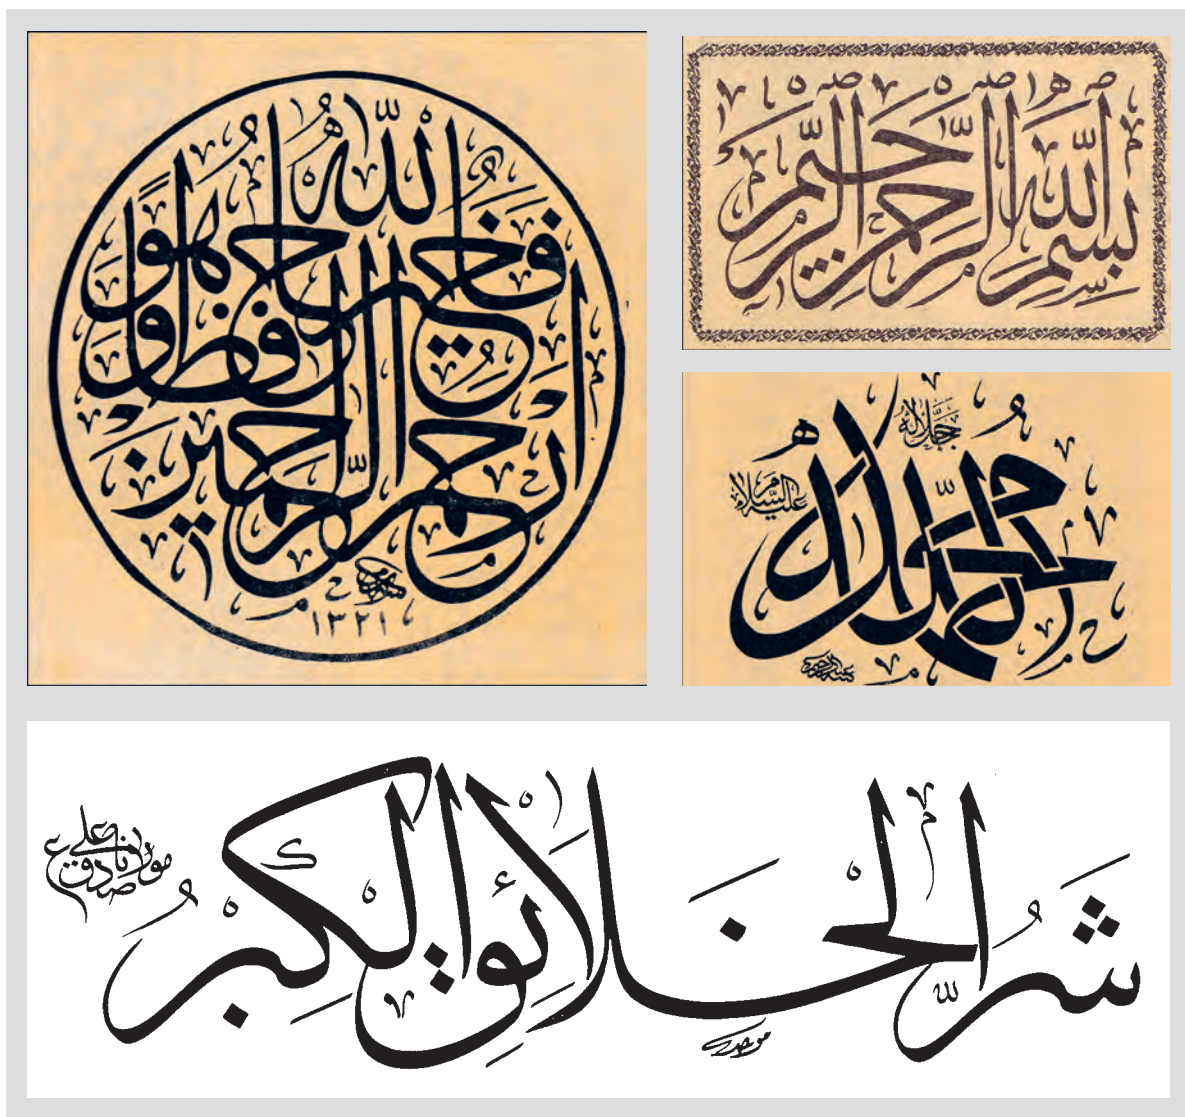 فَاللّٰهُ خَيْرٌ حَافِظًا وَهُوَ
أَرْحَمُ الرَّاحِمِينَ
١٣٢١
بِسْمِ اللّٰهِ الرَّحْمٰنِ الرَّحِيمِ
اللّٰه
جل جلاله
محمد
عليه السلام
شَرُّ الْخَلَائِقِ الْكِبْرُ
مولانا علي